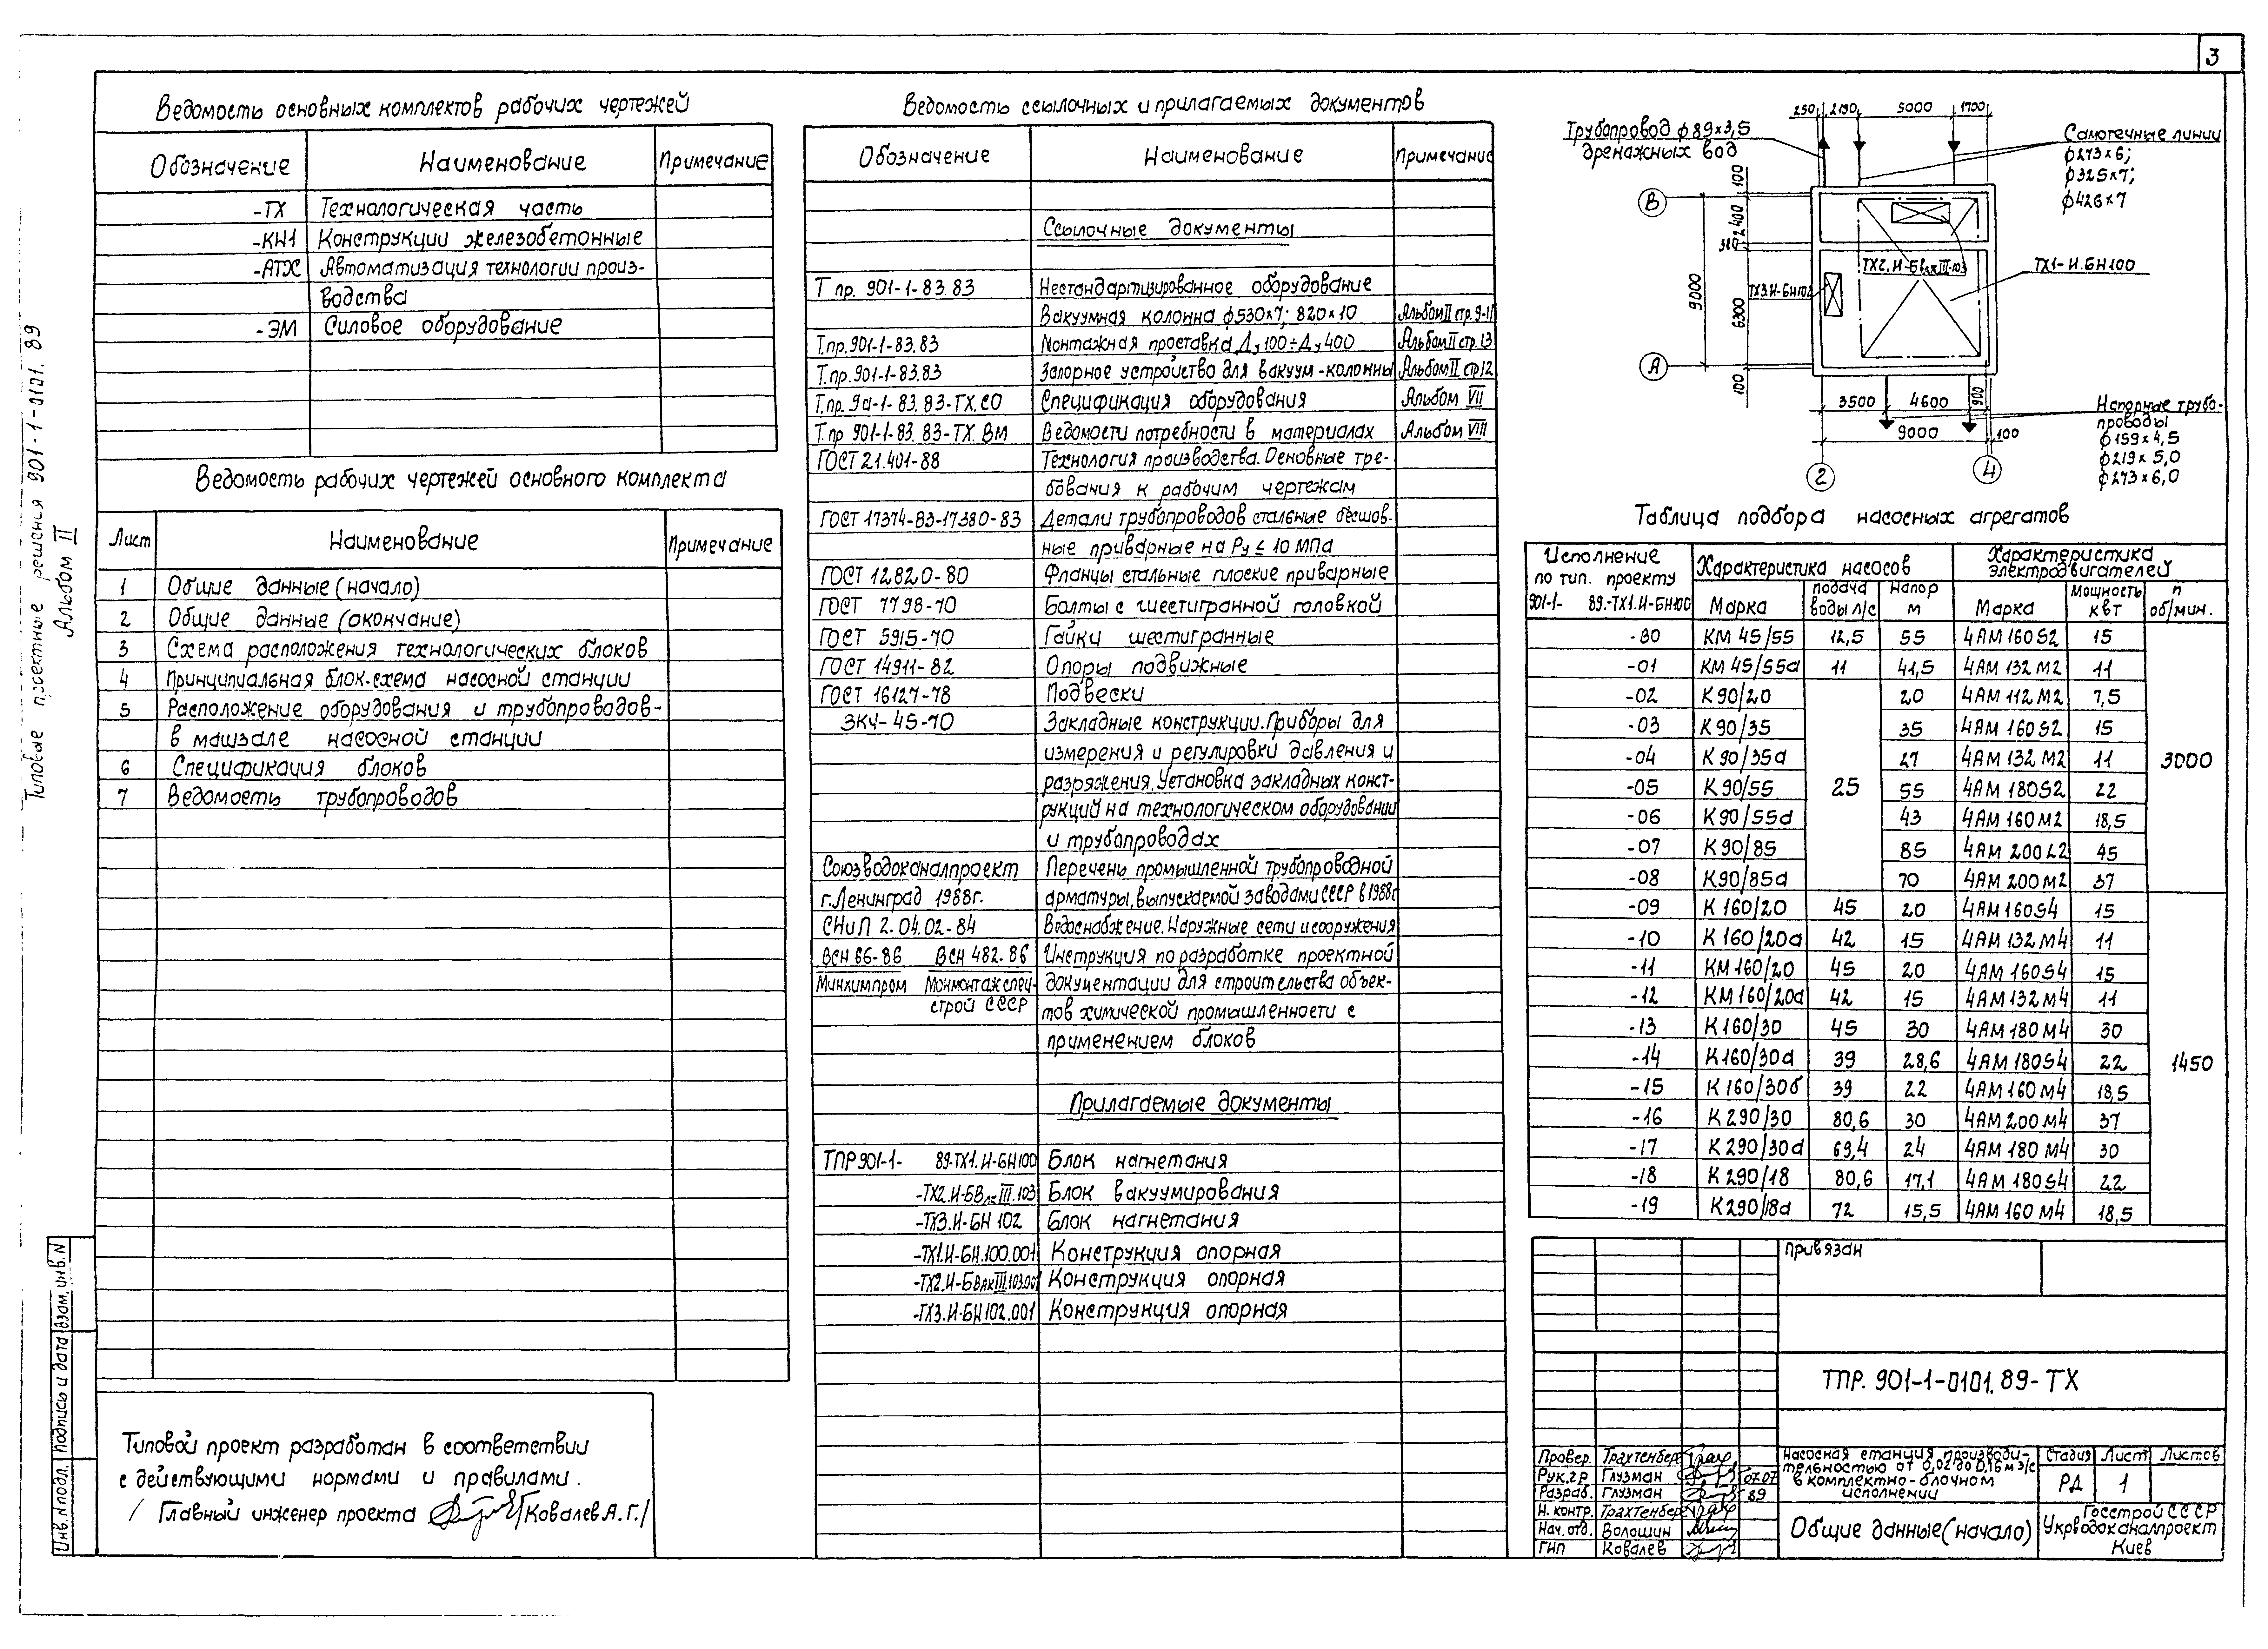 3
Типовые проектные решения 901-1-0101.89
Альбом II
Ведомость основных комплектов рабочих чертежей
Обозначение Наименование Примечание
-ТХ Технологическая часть
-КЖ1 Конструкции железобетонные
-АТХ Автоматизация технологии произ-
водства
-ЭМ Силовое оборудование
Ведомость рабочих чертежей основного комплекта
Лист Наименование Примечание
1 Общие данные (начало)
2 Общие данные (окончание)
3 Схема расположения технологических блоков
4 Принципиальная блок-схема насосной станции
5 Расположение оборудования и трубопроводов-
в машзале насосной станции
6 Спецификация блоков
7 Ведомость трубопроводов
Типовой проект разработан в соответствии
с действующими нормами и правилами.
/ Главный инженер проекта /Ковалев А.Г./
Инв.N подл. Подпись и дата Взам. инв.N
Ведомость ссылочных и прилагаемых документов
Обозначение Наименование Примечание
Ссылочные документы
Т пр. 901-1-83.83 Нестандартизированное оборудование
Вакуумная колонна ф530х7; 820х10 Альбом II стр. 9-11
Т.пр.901-1-83.83 Монтажная проставка Ду100÷Ду400 Альбом II стр. 13
Т.пр.901-1-83.83 Запорное устройство для вакуум-колонны Альбом II стр 12
Т.пр. 901-1-83.83-ТХ.СО Спецификация оборудования Альбом VII
Т.пр 901-1-83.83-ТХ.ВМ Ведомости потребности в материалах Альбом VIII
ГОСТ 21.401-88 Технология производства. Основные тре-
бования к рабочим чертежам
ГОСТ 17374-83-17380-83 Детали трубопроводов стальные бесшов-
ные приварные на Ру ≤ 10 МПа
ГОСТ 12820-80 Фланцы стальные плоские приварные
ГОСТ 7798-70 Болты с шестигранной головкой
ГОСТ 5915-70 Гайки шестигранные
ГОСТ 14911-82 Опоры подвижные
ГОСТ 16127-78 Подвески
ЗКЧ-45-70 Закладные конструкции. Приборы для
измерения и регулировки давления и
разряжения. Установка закладных конст-
рукций на технологическом оборудовании
и трубопроводах
Союзводоканалпроект Перечень промышленной трубопроводной
г.Ленинград 1988г. арматуры, выпускаемой заводами СССР в 1988г
СНиП 2.04.02-84 Водоснабжение. Наружные сети и сооружения
ВСН 66-86 ВСН 482-86 Инструкция по разработке проектной
Минхимпром Монмонтажспец- документации для строительства объек-
строй СССР тов химической промышленности с
применением блоков
Прилагаемые документы
ТПР 901-1- 89-ТХ1.И-БН100 Блок нагнетания
-ТХ2.И-БВакIII.103 Блок вакуумирования
-ТХ3.И-БН 102 Блок нагнетания
-ТХ1.И-БН.100.001 Конструкция опорная
-ТХ2.И-БВакIII.103.001 Конструкция опорная
-ТХ3.И-БН102.001 Конструкция опорная
250 2150 5000 1700
Трубопровод ф89х3,5
дренажных вод
Самотечные линии
ф273х6;
ф325х7;
ф426х7
В
А
100
2400
300
6300
100
9000
ТХ2.И-БвакIII-103
ТХ3.И-БН102
ТХ1-И.БН100
3500 4600 900
9000 100
2 4
Напорные трубо-
проводы
ф159х4,5
ф219х5,0
ф273х6,0
Таблица подбора насосных агрегатов
Исполнение по тип. проекту 901-1- 89.-ТХ1.И-БН100 Характеристика насосов Характеристика электродвигателей
Марка подача воды л/с Напор м Марка Мощность кВт n об/мин.
-00 КМ 45/55 12,5 55 4АМ 160S2 15
-01 КМ 45/55а 11 41,5 4АМ 132 М2 11
-02 К 90/20 20 4АМ 112 М2 7,5
-03 К 90/35 35 4АМ 160S2 15
-04 К 90/35а 27 4АМ 132 М2 11 3000
-05 К 90/55 25 55 4АМ 180S2 22
-06 К 90/55а 43 4АМ 160 М2 18,5
-07 К 90/85 85 4АМ 200L2 45
-08 К90/85а 70 4АМ 200М2 37
-09 К 160/20 45 20 4АМ160S4 15
-10 К 160/20а 42 15 4АМ 132 М4 11
-11 КМ 160/20 45 20 4АМ 160S4 15
-12 КМ 160/20а 42 15 4АМ 132 М4 11
-13 К 160/30 45 30 4АМ 180 М4 30
-14 К 160/30а 39 28,6 4АМ 180S4 22 1450
-15 К 160/30б 39 22 4АМ 160 М4 18,5
-16 К 290/30 80,6 30 4АМ 200 М4 37
-17 К 290/30а 69,4 24 4АМ 180 М4 30
-18 К 290/18 80,6 17,1 4АМ 180S4 22
-19 К290/18а 72 15,5 4АМ 160 М4 18,5
Привязан
ТПР. 901-1-0101.89-ТХ
Провер. Трахтенберг
Рук.гр Глузман 07.07
Разраб. Глузман 89
Н.контр. Трахтенберг
Нач.отд. Волошин
ГИП Ковалев
Насосная станция производи-
тельностью от 0,02 до 0,16 м3/с
в комплектно-блочном
исполнении
Стадия Лист Листов
РД 1
Общие данные (начало)
Госстрой СССР
Укрводоканалпроект
Киев